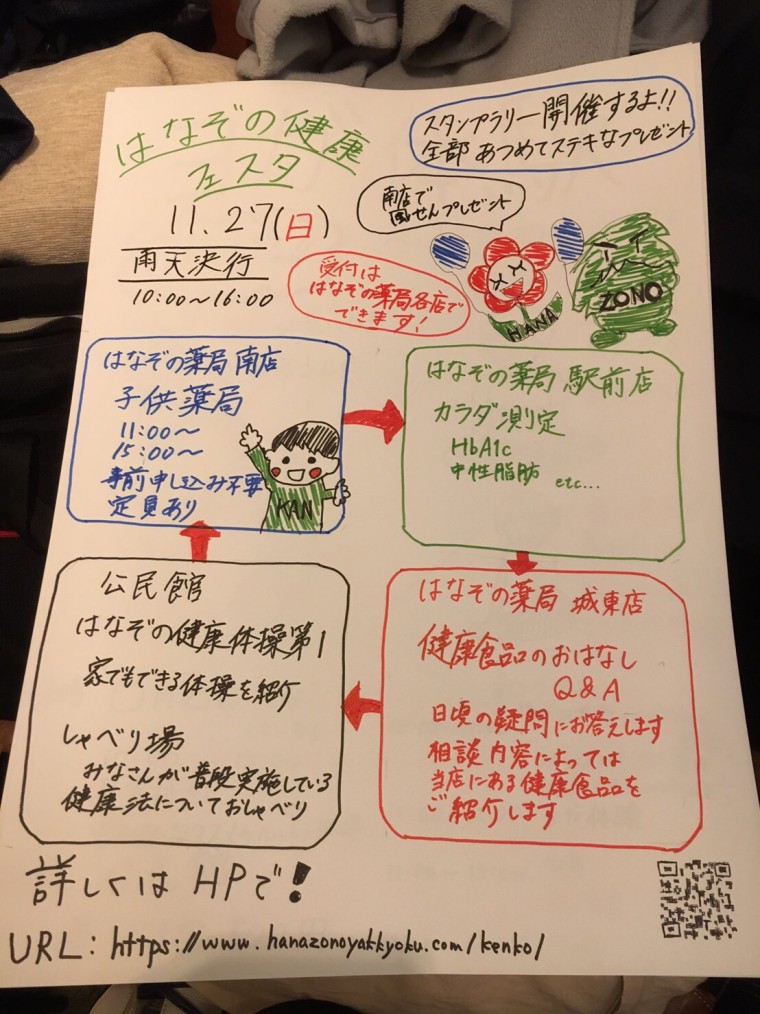 はなぞの健康
フェスタ
11.27(日)
雨天決行
10:00～16:00
スタンプラリー開催するよ!!
全部あつめてステキなプレゼント
南店で
風せんプレゼント
受付は
はなぞの薬局各店で
できます!
HANA
ZONO
はなぞの薬局 南店
子供薬局
11:00～
15:00～
事前申し込み不要
定員あり
KAN
はなぞの薬局 駅前店
カラダ測定
HbA1c
中性脂肪
etc...
はなぞの薬局 城東店
健康食品のおはなし
Q&A
日頃の疑問にお答えします
相談内容によっては
当店にある健康食品を
ご紹介します
公民館
はなぞの健康体操第1
家でもできる体操を紹介
しゃべり場
みなさんが普段実施している
健康法についておしゃべり
詳しくはHPで!
URL: https://www.hanazonoyakkyoku.com/kenko/